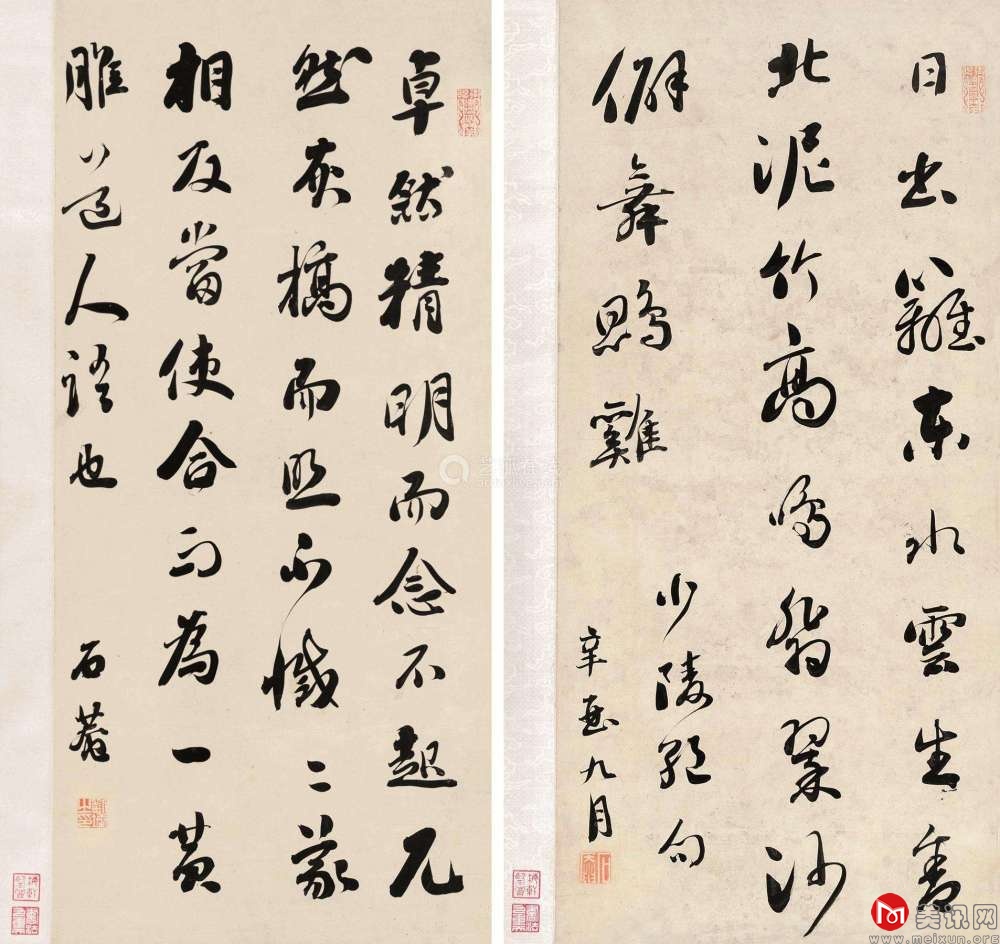 日出籬東水雲生舍
北泥竹高鳴翡翠沙
僻舞鵾雞
少陵絕句
辛 九月
卓然精明而念不起兀
然灰槁而照不滅二義
相反當使合而為一黃
道人語也
石菴
美讯网
www.meixun.org